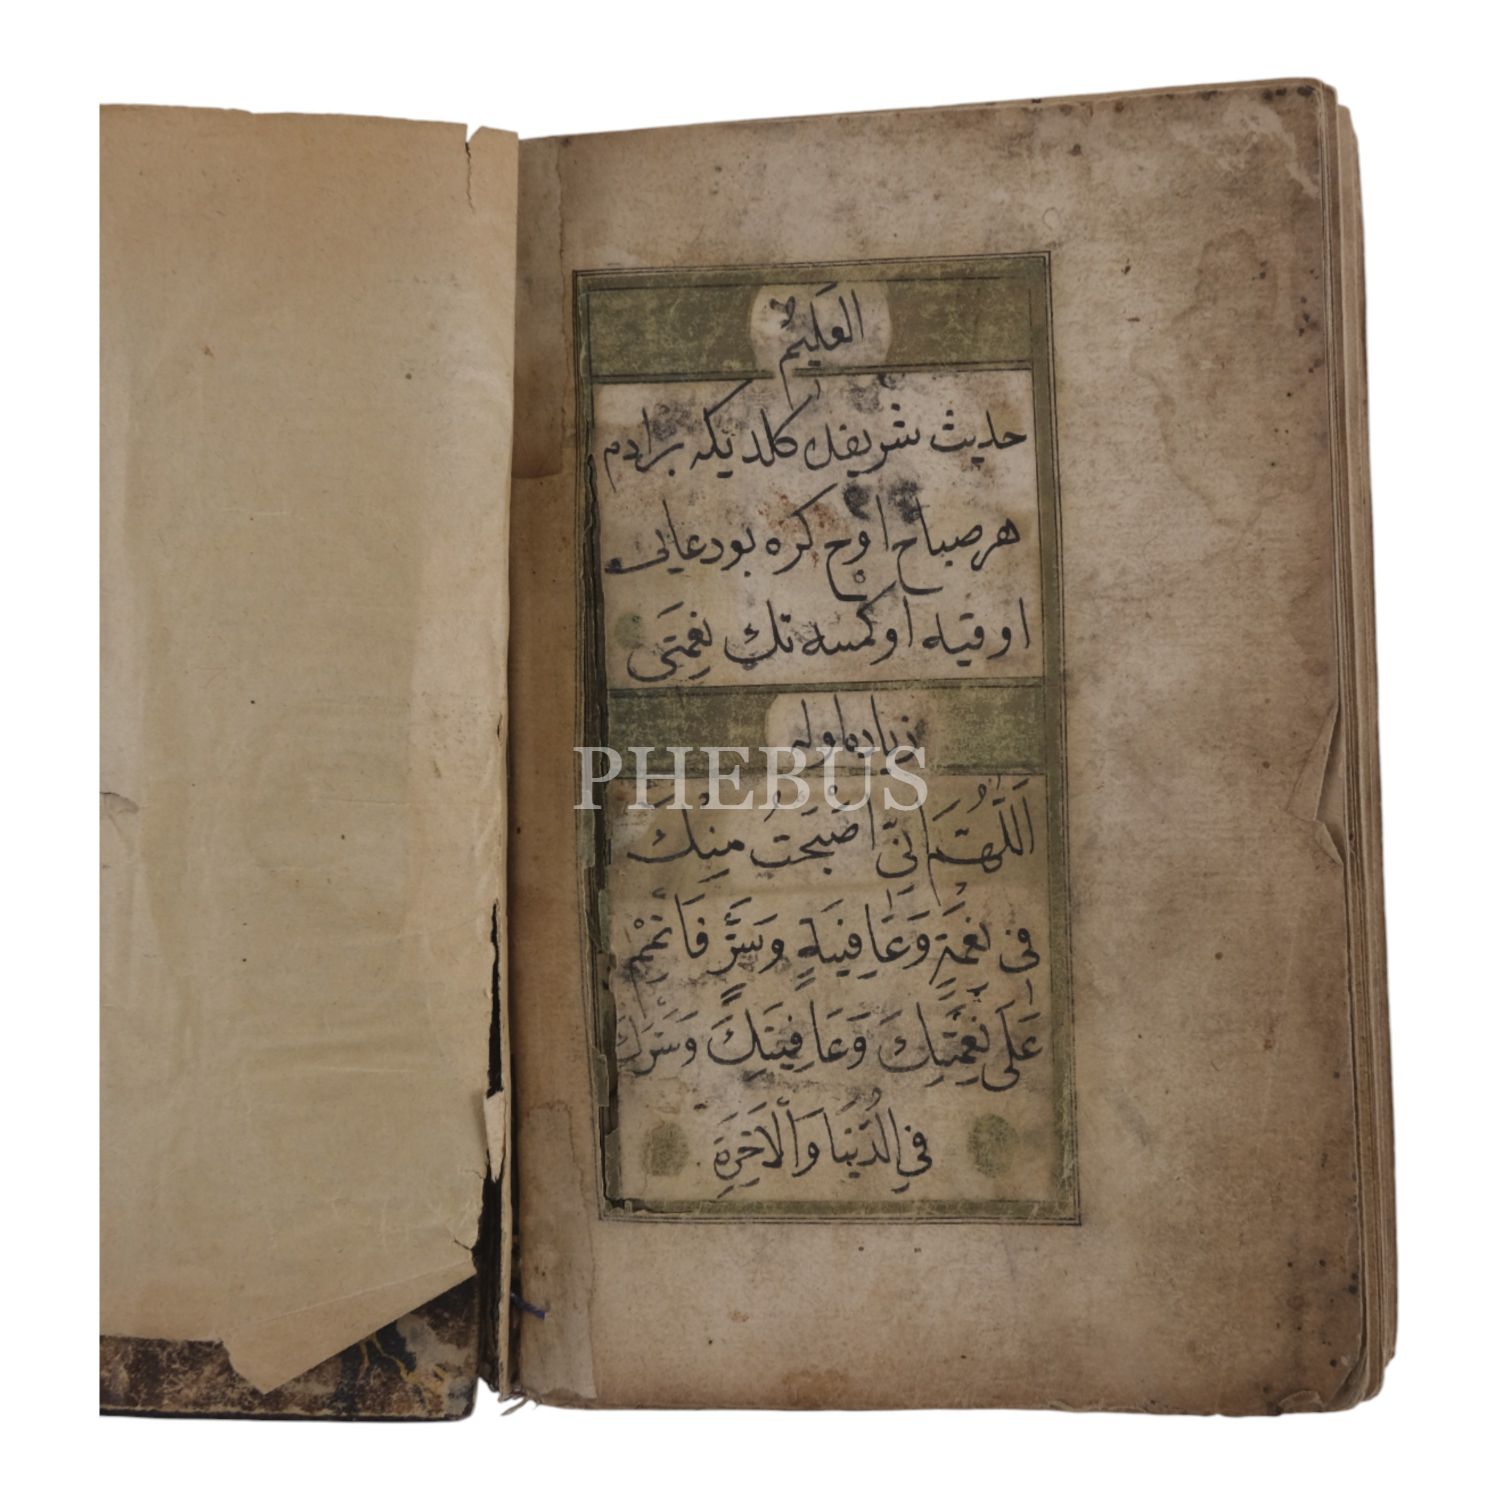 العَليْم
حديث شريفده كلديكه بر ادم
هر صباح اوچ كره بو دعايى
اوقيه اوكمسه نك نِعْمَتى
زياده اوله
PHEBUS
اَللّٰهُمَّ اِنّى اَصْبَحْتُ مِنْكَ
فى نِعْمَةٍ وَعَافِيَةٍ وَسَتْرٍ فَاَتْمِمْ
عَلَى نِعْمَتَكَ وَعَافِيَتَكَ وَسَتْرَكَ
فِى الدُّنْيَا وَالْاَخِرَةِ